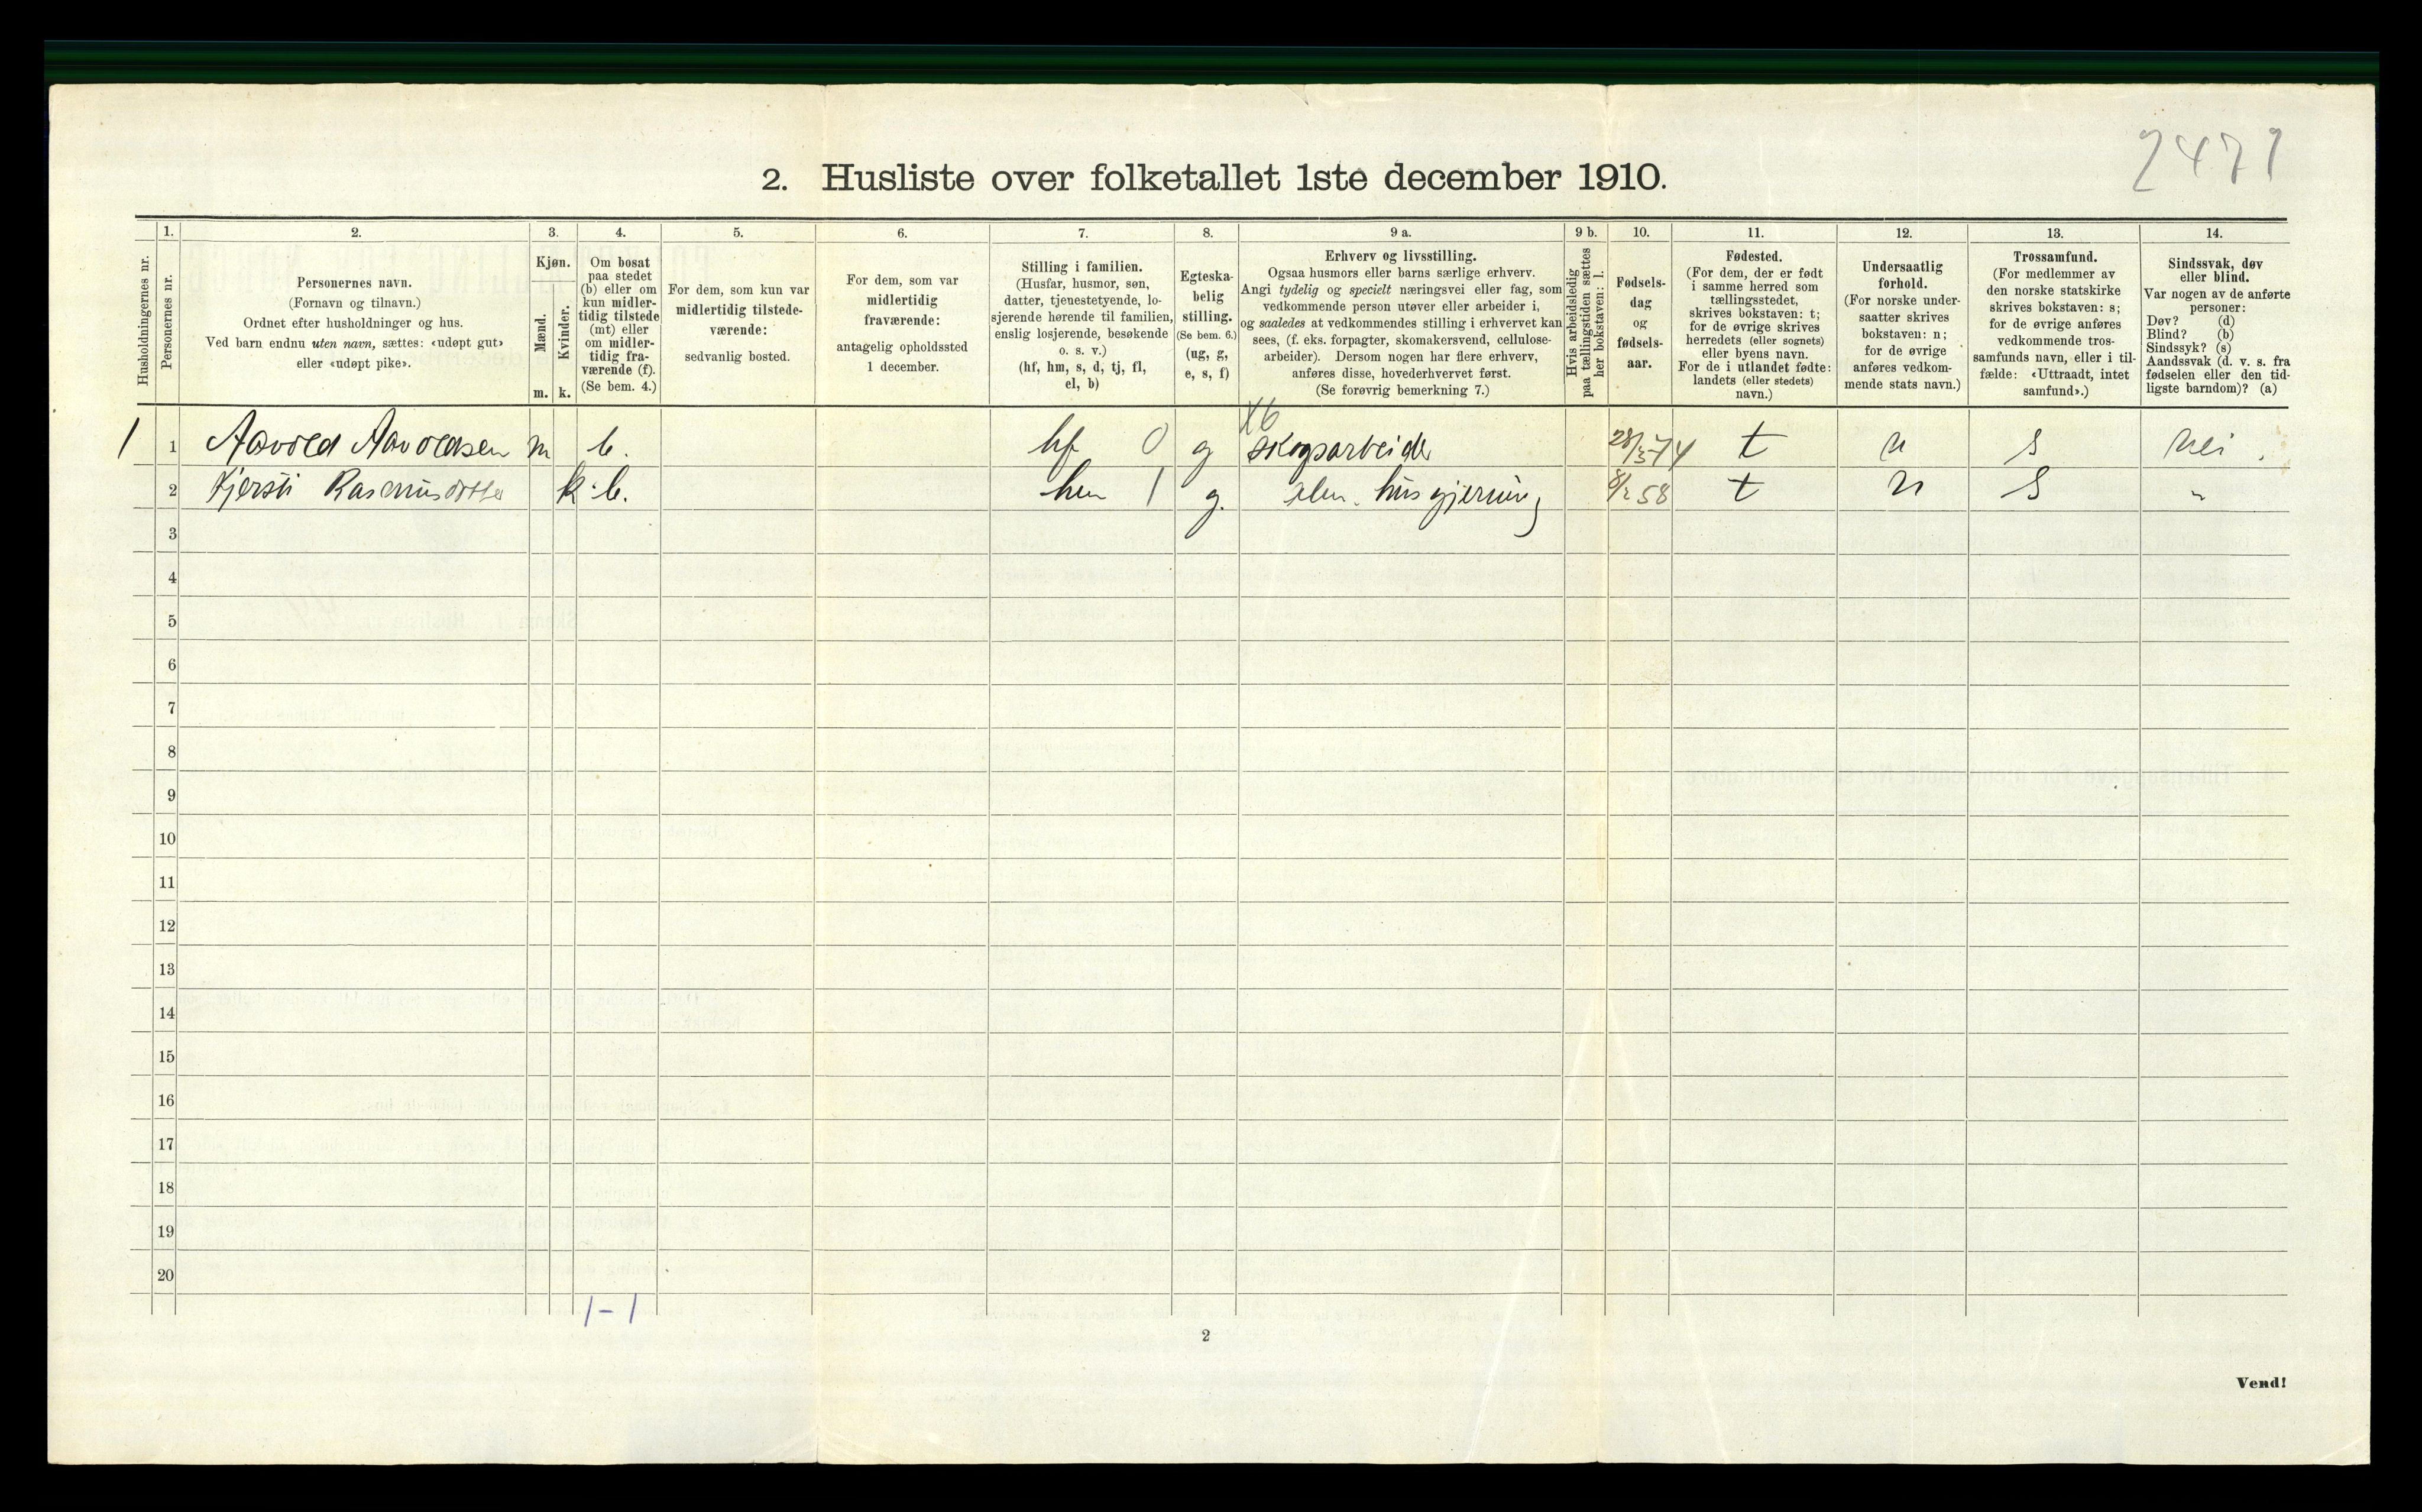 2471
2. Husliste over folketallet 1ste december 1910.
Husholdningernes nr.
1.
Personernes nr.
2.
Personernes navn.
(Fornavn og tilnavn.)
Ordnet efter husholdninger og hus.
Ved barn endnu uten navn, sættes: «udøpt gut»
eller «udøpt pike».
3.
Kjøn.
Mænd.
m.
Kvinder.
k.
4.
Om bosat
paa stedet
(b) eller om
kun midler-
tidig tilstede
(mt) eller
om midler-
tidig fra-
værende (f).
(Se bem. 4.)
5.
For dem, som kun var
midlertidig tilstede-
værende:
sedvanlig bosted.
6.
For dem, som var
midlertidig
fraværende:
antagelig opholdssted
1 december.
7.
Stilling i familien.
(Husfar, husmor, søn,
datter, tjenestetyende, lo-
sjerende hørende til familien,
enslig losjerende, besøkende
o. s. v.)
(hf, hm, s, d, tj, fl,
el, b)
8.
Egteska-
belig
stilling.
(Se bem. 6.)
(ug, g,
e, s, f)
9 a.
Erhverv og livsstilling.
Ogsaa husmors eller barns særlige erhverv.
Angi tydelig og specielt næringsvei eller fag, som
vedkommende person utøver eller arbeider i,
og saaledes at vedkommendes stilling i erhvervet kan
sees, (f. eks. forpagter, skomakersvend, cellulose-
arbeider). Dersom nogen har flere erhverv,
anføres disse, hovederhvervet først.
(Se forøvrig bemerkning 7.)
9 b.
Hvis arbeidsledig
paa tællingstiden sættes
her bokstaven: l.
10.
Fødsels-
dag
og
fødsels-
aar.
11.
Fødested.
(For dem, der er født
i samme herred som
tællingsstedet,
skrives bokstaven: t;
for de øvrige skrives
herredets (eller sognets)
eller byens navn.
For de i utlandet fødte:
landets (eller stedets)
navn.)
12.
Undersaatlig
forhold.
(For norske under-
saatter skrives
bokstaven: n;
for de øvrige
anføres vedkom-
mende stats navn.)
13.
Trossamfund.
(For medlemmer av
den norske statskirke
skrives bokstaven: s;
for de øvrige anføres
vedkommende tros-
samfunds navn, eller i til-
fælde: «Uttraadt, intet
samfund».)
14.
Sindssvak, døv
eller blind.
Var nogen av de anførte
personer:
Døv? (d)
Blind? (b)
Sindssyk? (s)
Aandssvak (d. v. s. fra
fødselen eller den tid-
ligste barndom)? (a)
X6
1 1 Aavold Aavoldsen m b. hf 0 g skogsarbeider 28/5 74 t n s nei.
2 Kjersti Rasmusdotter k b. hm 1 g. husgjerning 8/2 58 t n s "
3
4
5
6
7
8
9
10
11
12
13
14
15
16
17
18
19
20
1-1
2
Vend!